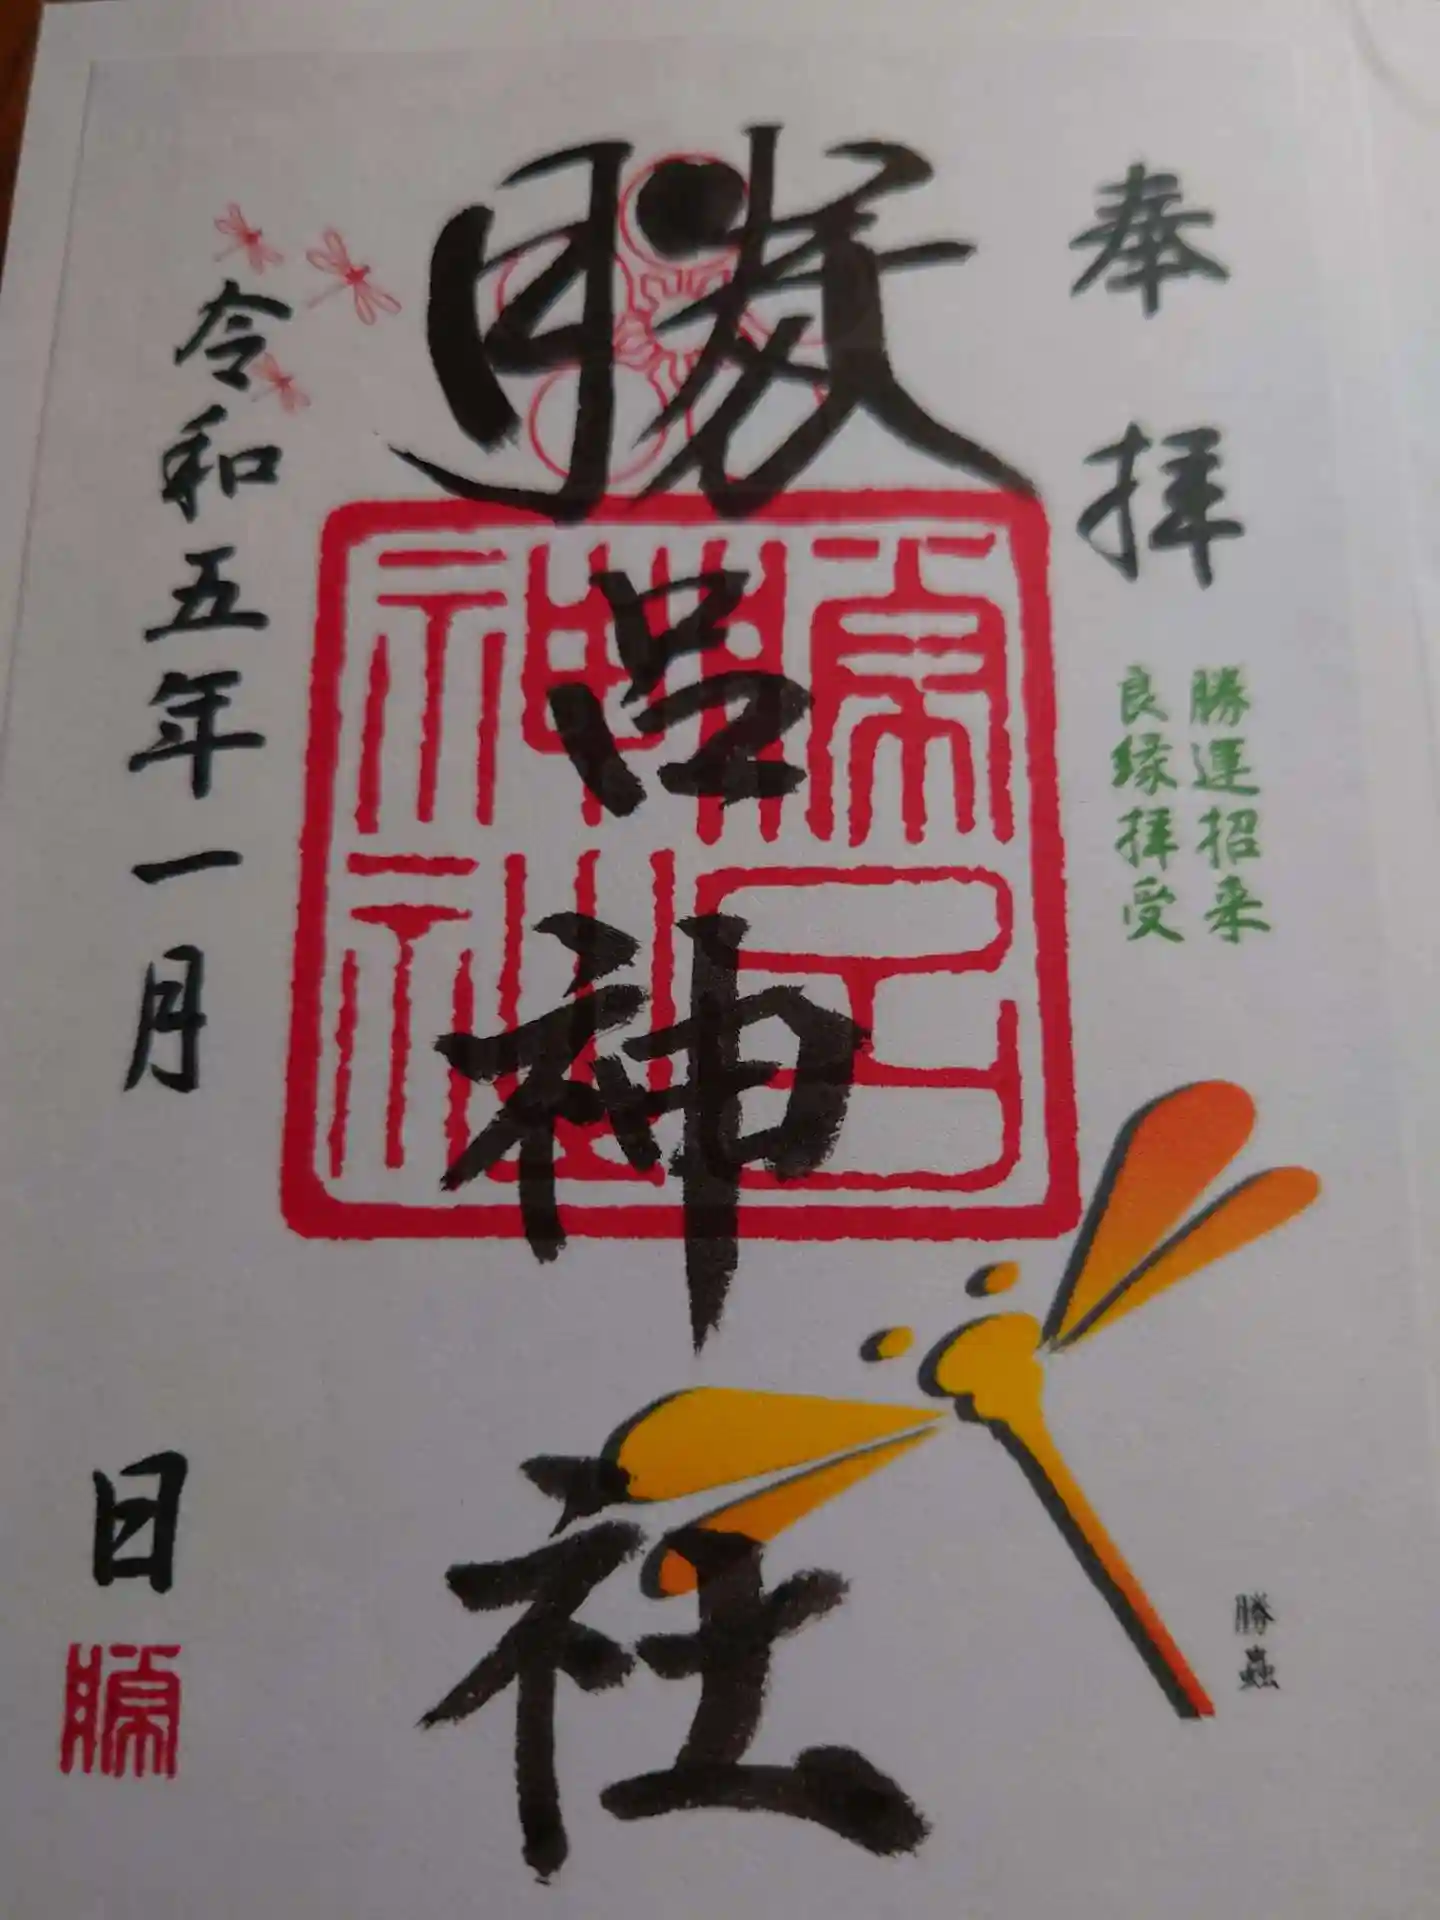 奉拝
勝運招来
良縁拝受
勝呂神社
令和五年一月
日
勝
勝蟲